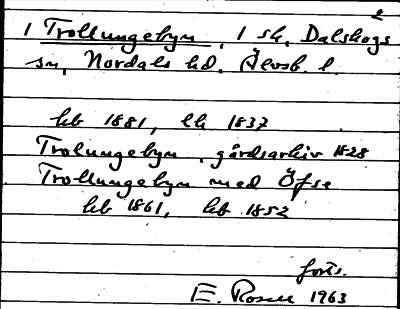 1 Trollungebyn, 1 sk, Dalskogs
sn, Nordals hd, Älvsb. l.
hb 1881, lk 1837
Trolungebyn, gårdsarkiv 1828
Trollungebyn med Öfse
hb 1861, hb 1852
forts.
E. Rosell 1963